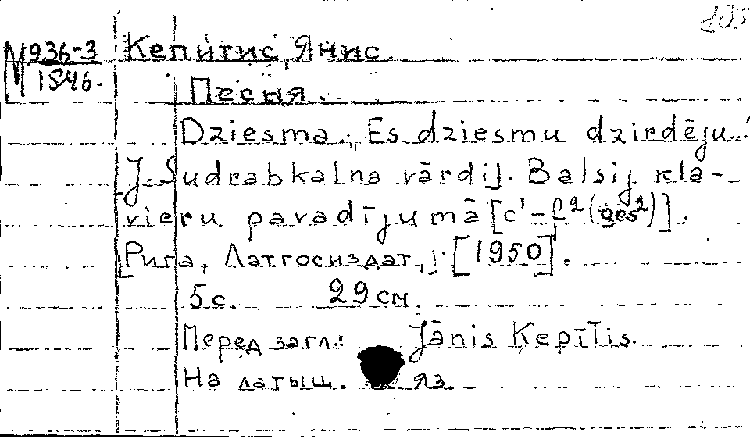 М936-3 Кепитис, Янис
1546.
Песня.
Dziesma. "Es dziesmu dzirdēju."
J. Sudrabkalna vārdi]. Balsij kla-
vieru pavadījumā [c¹-f²(ges²)].
[Рига, Латгосиздат,] [1950].
5с. 29см.
Перед загл.: Jānis Ķepītis.
На латыш. яз.